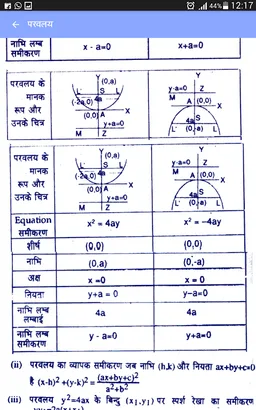 44% 12:17
← परवलय
नाभि लम्ब समीकरण x - a=0 x+a=0
परवलय के मानक रूप और उनके चित्र
Y (0,a)
L' S L
(-2a,0) 4a
(0,0) A X
y+a=0
M Z
Y
y-a=0 Z
M A (0,0)
X
4a S
L' (0,-a) L
परवलय के मानक रूप और उनके चित्र
Y (0,a)
L' S L
(-2a,0) 4a
(0,0) A X
y+a=0
M Z
Y
y-a=0 Z
M A (0,0)
X
4a S
L' (0,-a) L
Equation समीकरण x² = 4ay x² = -4ay
शीर्ष (0,0) (0,0)
नाभि (0,a) (0,-a)
अक्ष x =0 x = 0
नियता y+a = 0 y-a=0
नाभि लम्ब लम्बाई 4a 4a
नाभि लम्ब समीकरण y - a=0 y+a=0
(ii) परवलय का व्यापक समीकरण जब नाभि (h,k) और नियता ax+by+c=0
है (x-h)² +(y-k)² = (ax+by+c)² / a²+b²
(iii) परवलय y²=4ax के बिन्दु (x₁,y₁) पर स्पर्श रेखा का समीकरण